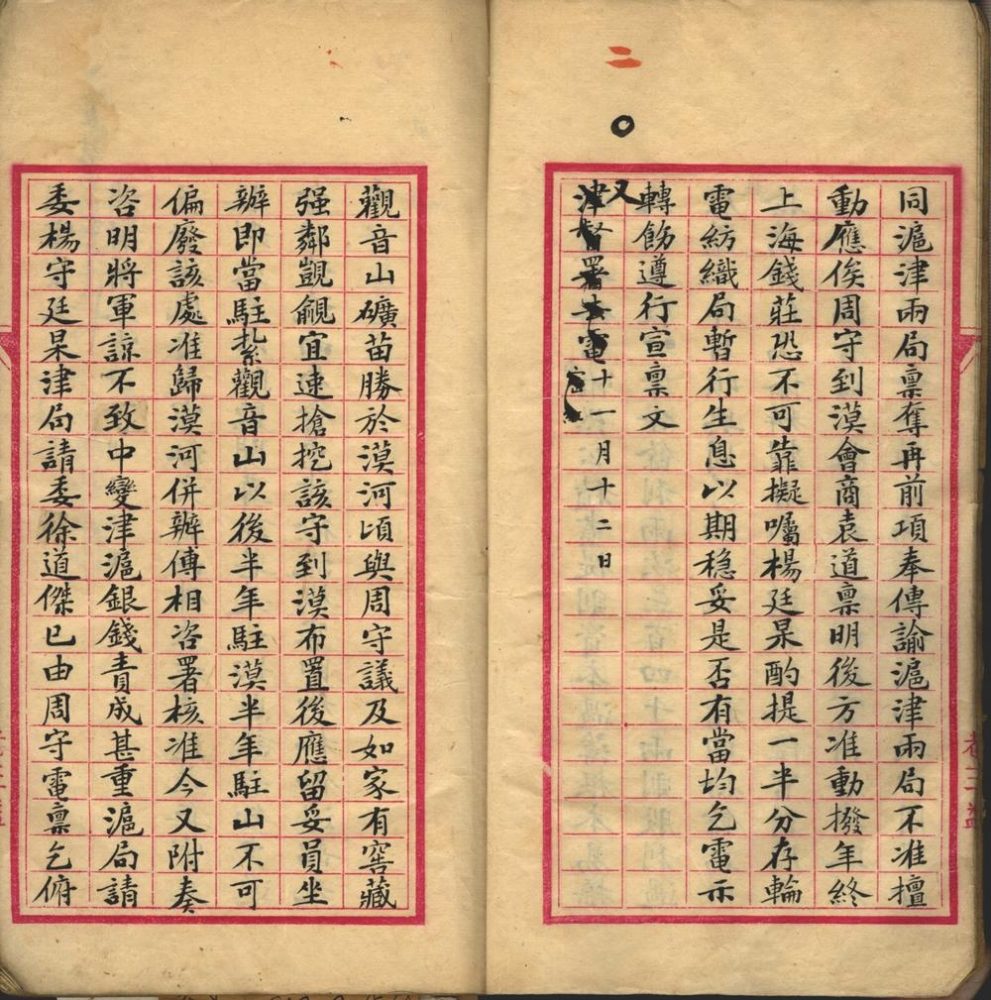 二
同滬津兩局稟奪再前項奉傳諭滬津兩局不准擅
動應俟周守到漠會商袁道稟明後方准動撥年終
上海錢莊恐不可靠擬囑楊廷杲酌提一半分存輪
電紡織局暫行生息以期穩妥是否有當均乞電示
轉飭遵行宣稟文
又
津督署去電十一月十二日
觀音山礦苗勝於漠河頃與周守議及如家有窖藏
强鄰覬覦宜速搶挖該守到漠布置後應留妥員坐
辦即當駐紮觀音山以後半年駐漠半年駐山不可
偏廢該處准歸漠河併辦傅相咨署核准今又附奏
咨明將軍諒不致中變津滬銀錢責成甚重滬局請
委楊守廷杲津局請委徐道傑已由周守電稟乞俯